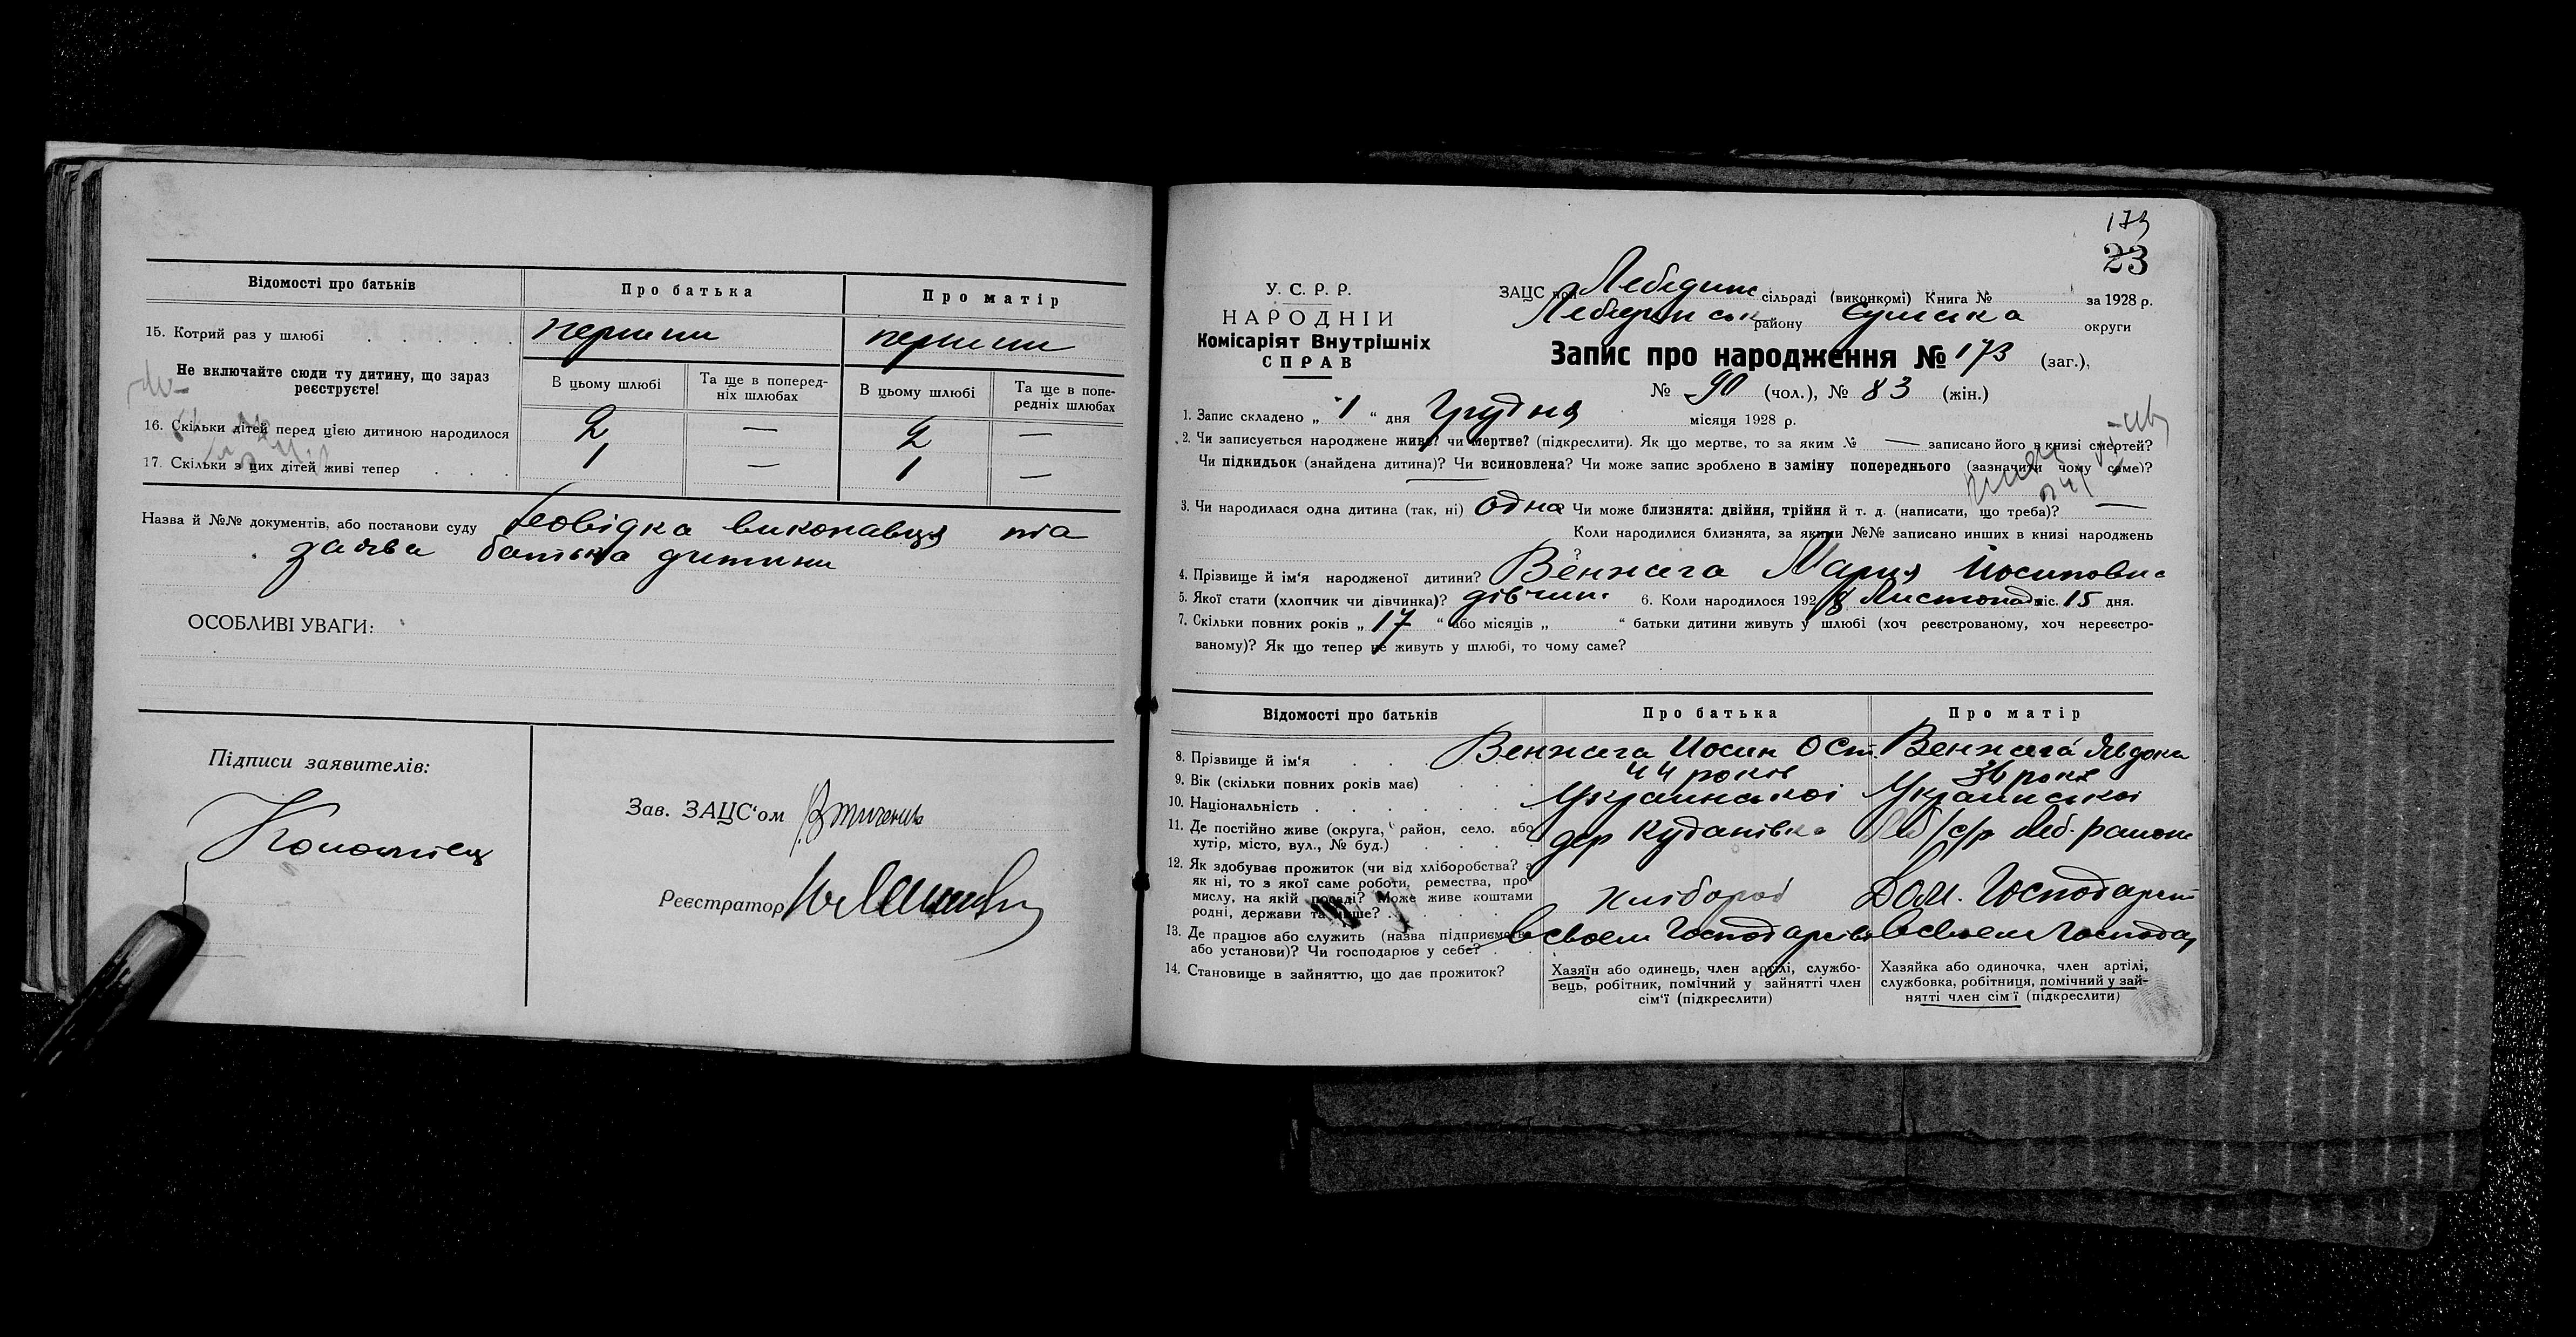 Відомості про батьків
Про батька
Про матір
15. Котрий раз у шлюбі . . . . .
перший
перший
Не включайте сюди ту дитину, що зараз
реєструєте!
В цьому шлюбі
Та ще в поперед-
ніх шлюбах
В цьому шлюбі
Та ще в попе-
редніх шлюбах
16. Скільки дітей перед цією дитиною народилося
2 — 2 —
17. Скільки з цих дітей живі тепер . . .
1 — 1 —
Назва й №№ документів, або постанови суду Повідка виконавця та
заява батька дитини
ОСОБЛИВІ УВАГИ:
Підписи заявителів:
Коломієць
Зав. ЗАЦС'ом
Реєстратор
173
23
У. С. Р. Р.
НАРОДНІЙ
Комісаріят Внутрішніх
СПРАВ
ЗАЦС при Лебединс сільраді (виконкомі) Книга № за 1928 р.
Лебединськ району Сумська округи
Запис про народження № 173 (заг.),
№ 90 (чол.), № 83 (жін.)
1. Запис складено „ 1 “ дня Грудня місяця 1928 р.
2. Чи записується народжене живе? чи мертве? (підкреслити). Як що мертве, то за яким № — записано його в книзі смертей?
Чи підкидьок (знайдена дитина)? Чи всиновлена? Чи може запис зроблено в заміну попереднього (зазначити чому саме)?
3. Чи народилася одна дитина (так, ні) одна Чи може близнята: двійня, трійня й т. д. (написати, що треба)? —
Коли народилися близнята, за якими №№ записано инших в книзі народжень
?
4. Прізвище й ім'я народженої дитини? Венжега Мария Йосиповна
5. Якої стати (хлопчик чи дівчинка)? дівчин. 6. Коли народилося 1928 Листопад міс. 15 дня.
7. Скільки повних років „ 17 “ або місяців „ “ батьки дитини живуть у шлюбі (хоч реєстрованому, хоч нереєстро-
ваному)? Як що тепер не живуть у шлюбі, то чому саме?
Відомості про батьків
Про батька
Про матір
8. Прізвище й ім'я . . . Венжега Йосип Ост. Венжега Явдоха
9. Вік (скільки повних років має) . . . 44 років 36 років
10. Національність . . . . . . Української Української
11. Де постійно живе (округа, район, село, або
хутір, місто, вул., № буд.) . . . .
дер Куданівка Леб с/р Леб. району
12. Як здобуває прожиток (чи від хліборобства? а
як ні, то з якої саме роботи, ремества, про-
мислу, на якій посаді? Може живе коштами
родні, держави та инше? . . . . . .
хлібороб Дом. Господарст
13. Де працює або служить (назва підприємства
або установи)? Чи господарює у себе? . .
В своем Господарстві В своем Господар
14. Становище в зайняттю, що дає прожиток?
Хазяїн або одинець, член артілі, службо-
вець, робітник, помічний у зайнятті член
сім'ї (підкреслити)
Хазяйка або одиночка, член артілі,
службовка, робітниця, помічний у зай-
нятті член сім'ї (підкреслити)